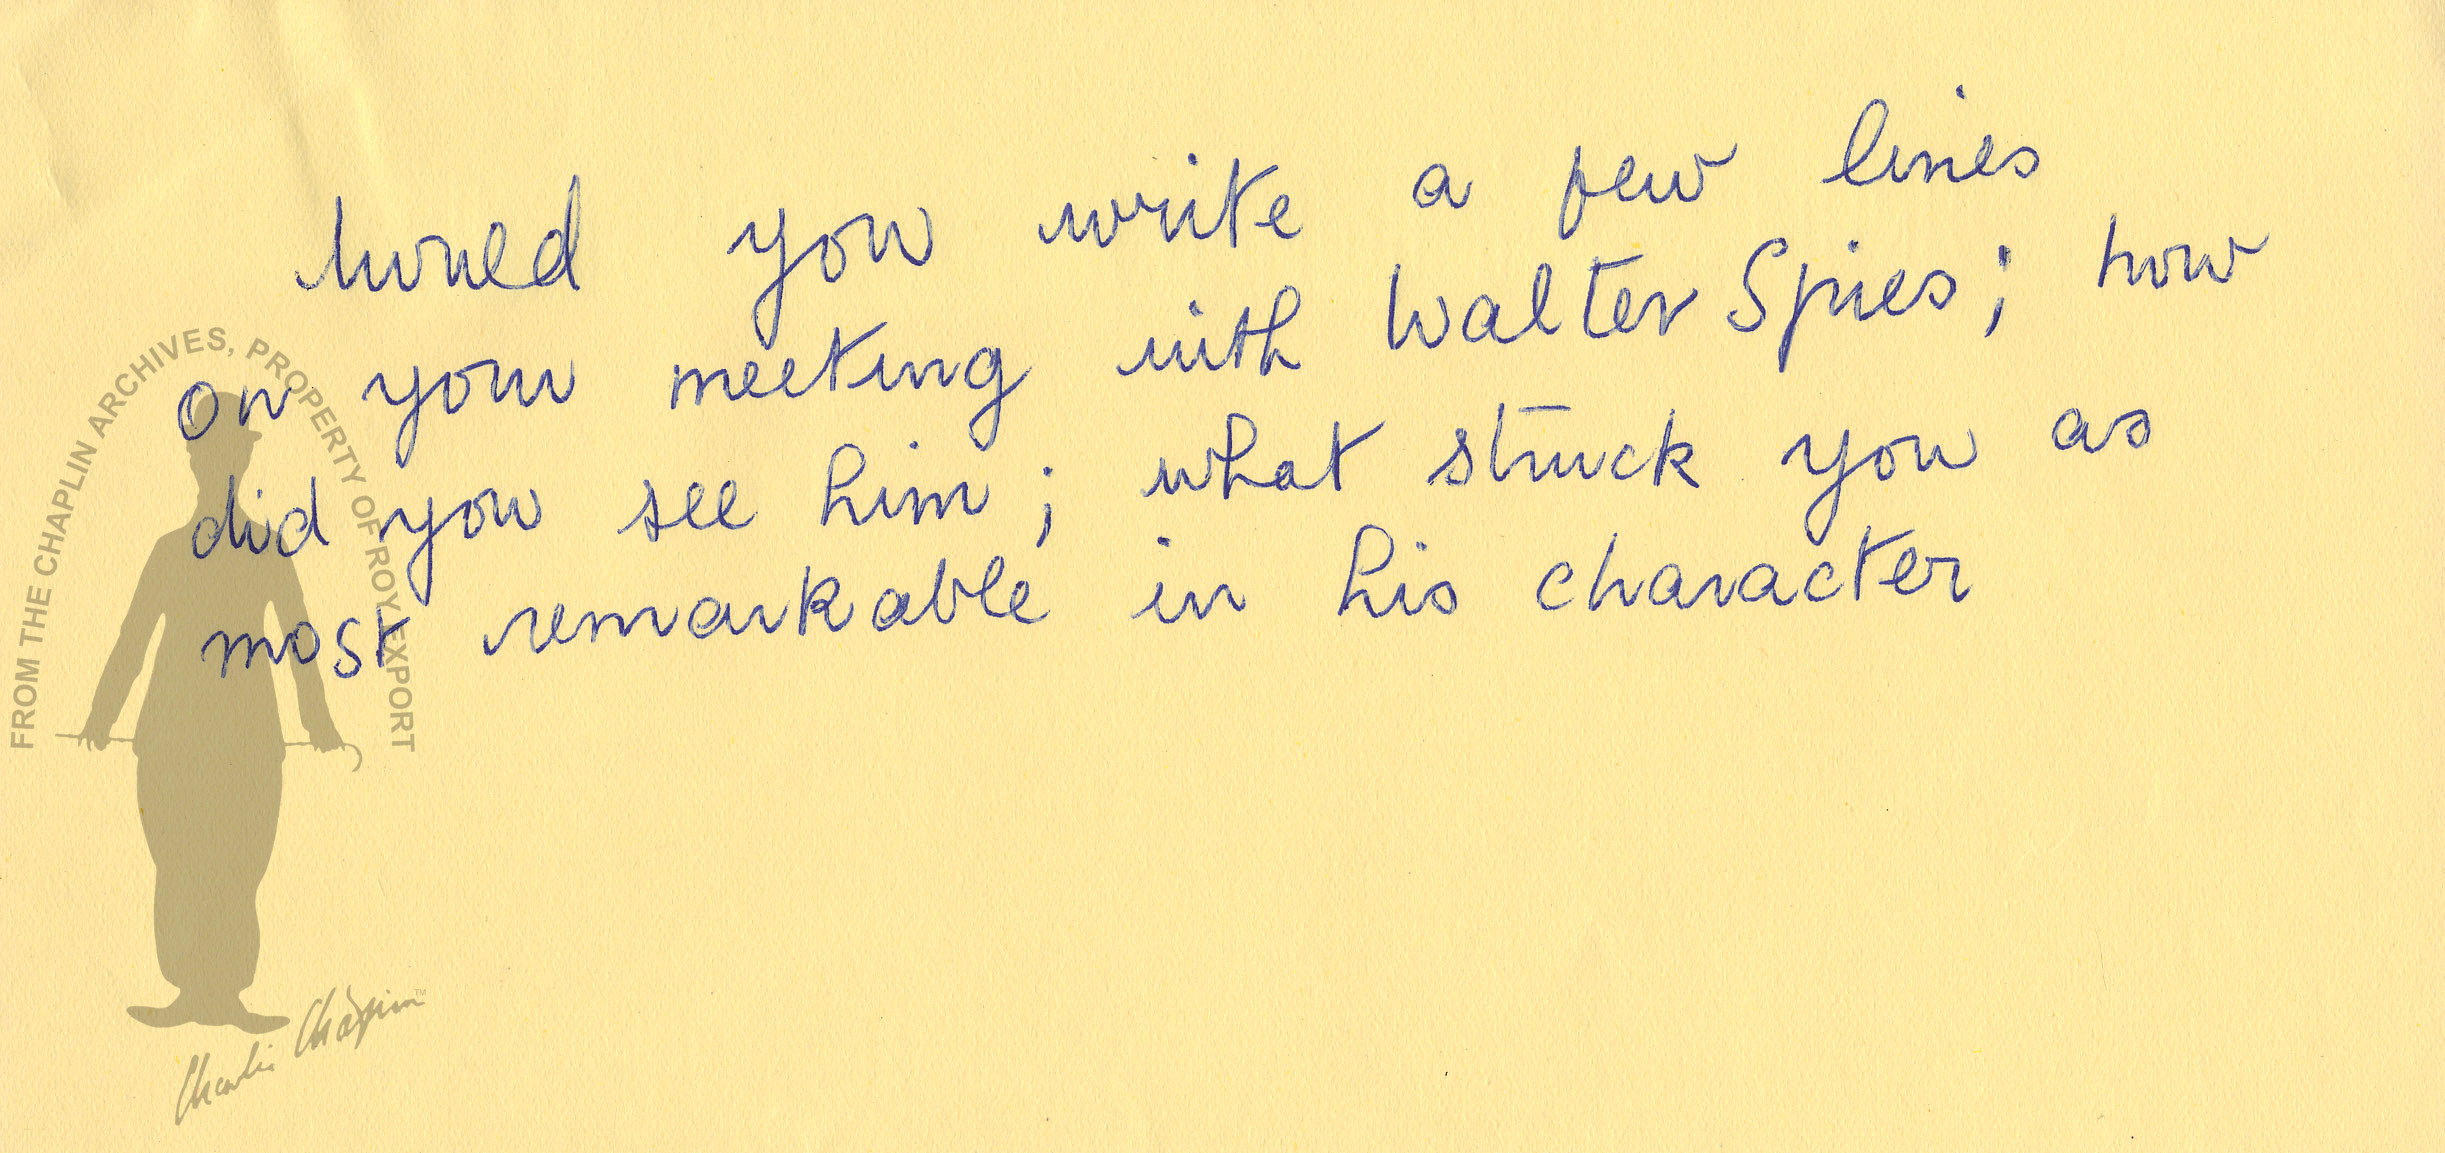 Would you write a few lines
on your meeting with Walter Spies; how
did you see him; what struck you as
most remarkable in his character
FROM THE CHAPLIN ARCHIVES, PROPERTY OF ROY EXPORT
Charlie Chaplin™